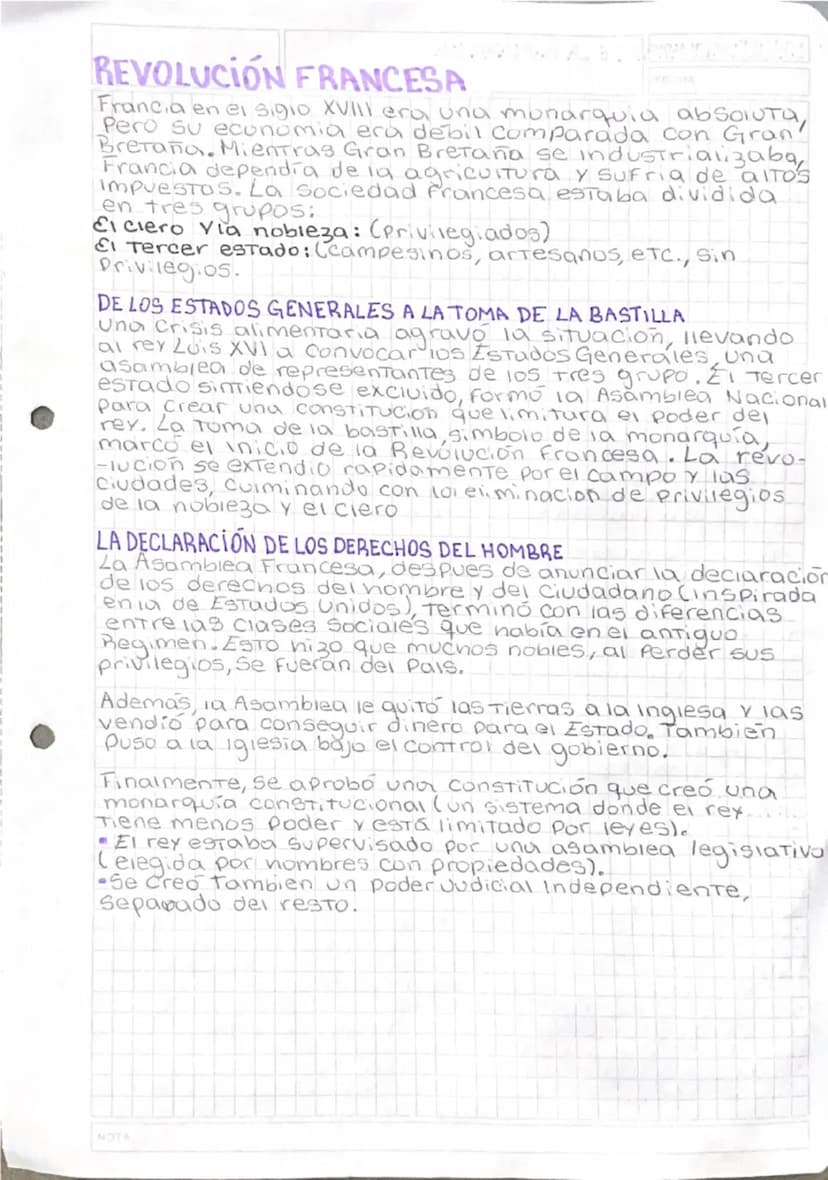 REVOLUCIÓN FRANCESA
Francia en el siglo XVIII era una monarquia absoluta,
Pero su economia era debil comparada con Gran
Bretaña. Mientras Gran Bretaña se industrializaba,
Francia dependía de la agricultura y sufria de altos
impuestos. La sociedad Francesa estaba dividida
en tres grupos:
El clero y la nobleza: (privilegiados)
El Tercer estado: (campesinos, artesanos, etc., sin
privilegios.
DE LOS ESTADOS GENERALES A LA TOMA DE LA BASTILLA
Una crisis alimentaria agravó la situación, llevando
al rey Luis XVI a convocar los Estados Generales, una
asamblea de representantes de los tres grupo. El Tercer
estado sintiendose excluido, formó la Asamblea Nacional
para crear una constitución que limitara el poder del
rey. La toma de la bastilla, simbolo de la monarquía,
marcó el inicio de la Revolución Francesa. La revo-
-lucion se extendio rapidamente por el campo y las
ciudades, culminando con la eliminacion de privilegios
de la nobleza y el clero
LA DECLARACIÓN DE LOS DERECHOS DEL HOMBRE
La Asamblea Francesa, despues de anunciar la declaración
de los derechos del hombre y del Ciudadano (inspirada
en la de Estados Unidos), terminó con las diferencias
entre las clases sociales que había en el antiguo
Regimen. Esto hizo que muchos nobles, al perder sus
privilegios, se fueran del país.
Además, la Asamblea le quitó las tierras a la Inglesa y las
vendió para conseguir dinero para el Estado. También
puso a la iglesia bajo el control del gobierno.
Finalmente, se aprobó una constitución que creó una
monarquía constitucional (un sistema donde el rey
tiene menos poder y está limitado por leyes).
• El rey estaba supervisado por una asamblea legislativa
(elegida por hombres con propiedades).
• Se creó también un poder Judicial Independiente,
separado del resto.
NOTA